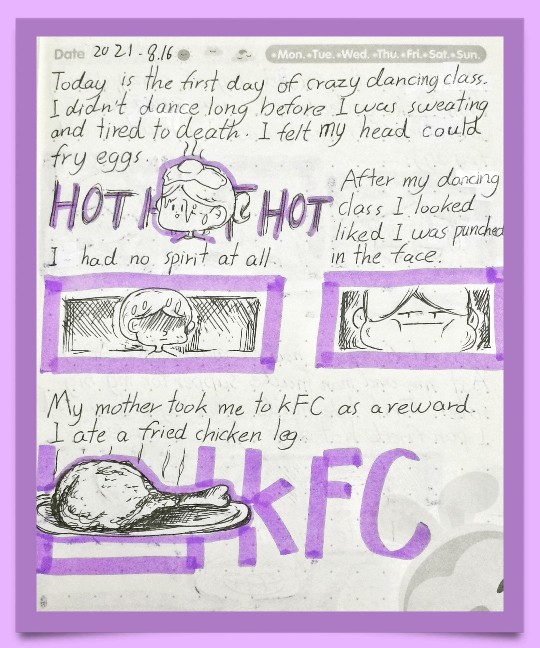 Date 2021.8.16
Mon. Tue. Wed. Thu. Fri. Sat. Sun.
Today is the first day of crazy dancing class.
I didn't dance long before I was sweating
and tired to death. I felt my head could
fry eggs.
HOT H T HOT
After my dancing
class I looked
liked I was punched
in the face.
I had no spirit at all.
My mother took me to kFC as a reward.
I ate a fried chicken leg.
kFC